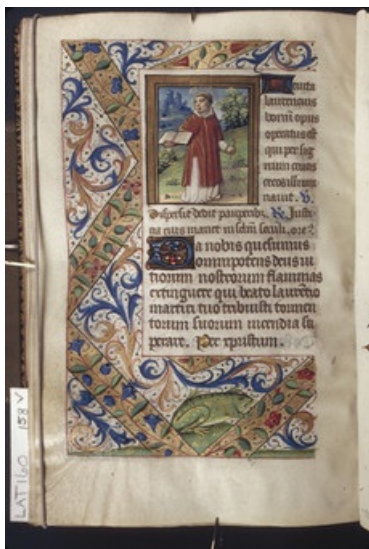 Levita
laurencius
bonum opus
operatus est
qui per sig
num crucis
cecos illumi
nauit. V.
Dispersit dedit pauperibz. R. Justi
cia eius manet in sclm sculi. ore?
Da nobis quesumus
omnipotens deus vi
tiorum nostrorum flammas
extinguere qui beato laurentio
martiri tuo tribuisti tormen
torum suorum incendia su
perare. Per xpristum.
LAT 160 158 V